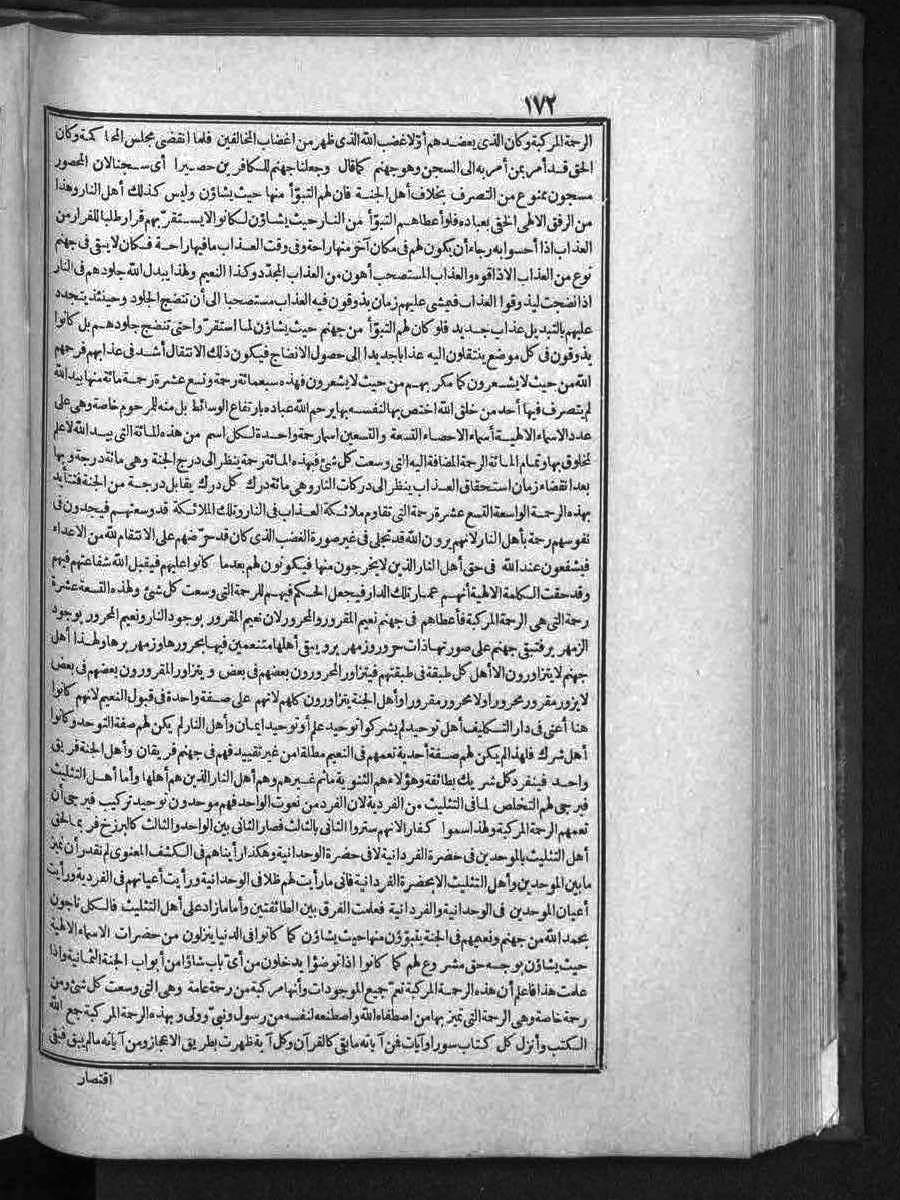 ١٧٢
الرحمة المركبة وكان الذى بعضدهم أولا غضب الله الذى ظهر من اغضاب المخالفين فلما انقضى مجلس المحاكمة وكان
الحق قد أمر بمن أمر به الى السجن وهو جهنم كما قال وجعلنا جهنم للكافرين حصيرا أى سجنا لان المحصور
مسجون ممنوع من التصرف بخلاف أهل الجنة فان لهم التبوّأ منها حيث يشاؤن وليس كذلك أهل النار وهذا
من الرفق الالهى الخفى بعباده فلو أعطاهم التبوّأ من النار حيث يشاؤن لكانوا لا يستقر بهم قرار طلبا للفرار من
العذاب اذا أحسوا به رجاء أن يكون لهم فى مكان آخر منها راحة وفى وقت العذاب ما فيها راحة فكان لا يبقى فى جهنم
نوع من العذاب الا ذاقوه والعذاب المستصحب أهون من العذاب المجدّد وكذا النعيم ولهذا يبدل الله جلودهم فى النار
اذا نضجت ليذوقوا العذاب فيمشى عليهم زمان يذوقون فيه العذاب مستصحبا الى أن تنضج الجلود وحينئذ يتجدد
عليهم بالتبديل عذاب جديد فلو كان لهم التبوّأ من جهنم حيث يشاؤن لما استقرّوا حتى تنضج جلودهم بل كانوا
يذوقون فى كل موضع ينتقلون اليه عذابا جديدا الى حصول الانضاج فيكون ذلك الانتقال أشد فى عذابهم فرحمهم
الله من حيث لا يشعرون كما مكر بهم من حيث لا يشعرون فهذه سبعمائة رحمة وتسع عشرة رحمة مائة منها بيد الله
لم يتصرف فيها أحد من خلق الله اختص بها لنفسه بها يرحم الله عباده بارتفاع الوسائط بل منه للمرحوم خاصة وهى على
عدد الاسماء الالهية أسماء الاحصاء التسعة والتسعين اسما رحمة واحدة لكل اسم من هذه المائة التى بيد الله لا علم
لمخلوق بها وتمام المائة الرحمة المضافة اليه التى وسعت كل شئ فبهذه المائة رحمة ينظر الى درج الجنة وهى مائة درجة وبها
بعد انقضاء زمان استحقاق العذاب ينظر الى دركات النار وهى مائة درك كل درك يقابل درجة من الجنة فتتأيد
بهذه الرحمة الواسعة التسع عشرة رحمة التى تقاوم ملائكة العذاب فى النار وتلك الملائكة قد وسعتهم فيجدون فى
نفوسهم رحمة بأهل النار لانهم يرون الله قد تجلى فى غير صورة الغضب الذى كان قد حرّضهم على الانتقام لله من الاعداء
فيشفعون عند الله فى حق أهل النار الذين لا يخرجون منها فيكونون لهم بعدما كانوا عليهم فيقبل الله شفاعتهم فيهم
وقد حقت الكلمة الالهية أنهم عمار تلك الدار فيجعل الحكم فيهم للرحمة التى وسعت كل شئ ولهذه التسعة عشرة
رحمة التى هى الرحمة المركبة فأعطاهم فى جهنم نعيم المقرور والمحرور لان نعيم المقرور بوجود النار ونعيم المحرور بوجود
الزمهرير فتبقى جهنم على صورتها ذات حرور وزمهرير ويبقى أهلها متنعمين فيها بحرورها وزمهريرها ولهذا أهل
جهنم لا يتزاورون الا أهل كل طبقة فى طبقتهم فيتزاور المحرورون بعضهم فى بعض ويتزاور المقرورون بعضهم فى بعض
لا يزور مقرور محرورا ولا محرور مقرورا وأهل الجنة يتزاورون كلهم لانهم على صفة واحدة فى قبول النعيم لانهم كانوا
هنا أعنى فى دار التكليف أهل توحيد لم يشركوا توحيد علم أو توحيد ايمان وأهل النار لم يكن لهم صفة التوحد وكانوا
أهل شرك فلهذا لم يكن لهم صفة أحدية تعمهم فى النعيم مطلقا من غير تقييد فهم فى جهنم فريقان وأهل الجنة فريق
واحد فينفرد كل شريك بطائفة وهؤلاء هم الثنوية ما ثم غيرهم وهم أهل النار الذين هم أهلها وأما أهل التثليث
فيرجى لهم التخلص لما فى التثليث من الفردية لان الفرد من نعوت الواحد فهم موحدون توحيد تركيب فيرجى أن
تعمهم الرحمة المركبة ولهذا سموا كفارا لانهم ستروا الثانى بالثالث فصار الثانى بين الواحد والثالث كالبرزخ فربما لحق
أهل التثليث بالموحدين فى حضرة الفردانية لا فى حضرة الوحدانية وهكذا رأيناهم فى الكشف المعنوى لم نقدر أن نميز
ما بين الموحدين وأهل التثليث الا بحضرة الفردانية فانى ما رأيت لهم ظلا فى الوحدانية ورأيت أعيانهم فى الفردية ورأيت
أعيان الموحدين فى الوحدانية والفردانية فعلمت الفرق بين الطائفتين وأما ما زاد على أهل التثليث فالكل ناجون
بحمد الله من جهنم ونعيمهم فى الجنة يتبوّؤن منها حيث يشاؤن كما كانوا فى الدنيا ينزلون من حضرات الاسماء الالهية
حيث يشاؤن بوجه حق مشروع لهم كما كانوا اذا توضؤا يدخلون من أىّ باب شاؤا من أبواب الجنة الثمانية واذا
علمت هذا فاعلم أن هذه الرحمة المركبة تعمّ جميع الموجودات وأنها مركبة من رحمة عامة وهى التى وسعت كل شئ ومن
رحمة خاصة وهى الرحمة التى تميز بها من اصطفاه الله واصطنعه لنفسه من رسول ونبىّ وولى وبهذه الرحمة المركبة جمع الله
الكتب وأنزل كل كتاب سورا وآيات فمن آياته ما بقى كالقرآن وكل آية ظهرت بطريق الاعجاز ومن آياته ما لم يبق فبقى
اقتصار